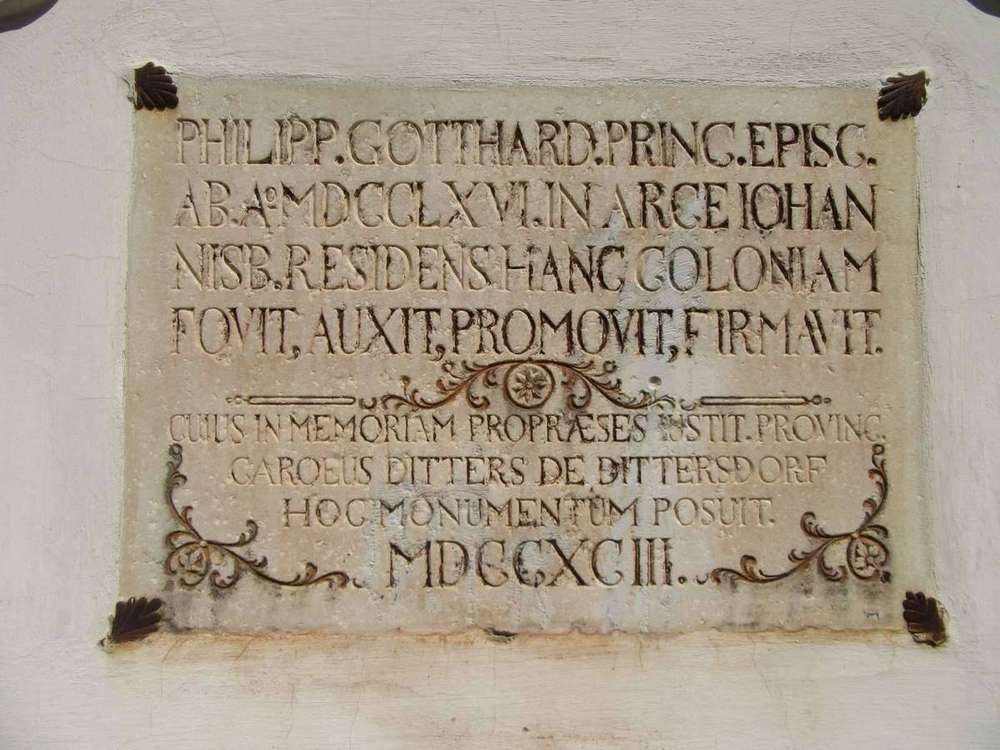 PHILIPP.GOTTHARD.PRINC.EPISC.
AB.Aº.MDCCLXVI.IN ARCE IOHAN
NISB.RESIDENS HANC COLONIAM
FOVIT, AUXIT, PROMOVIT, FIRMAVIT.
CUIUS IN MEMORIAM PROPRÆSES IUSTIT. PROVINC.
CAROLUS DITTERS DE DITTERSDORF
HOC MONUMENTUM POSUIT.
MDCCXCIII.